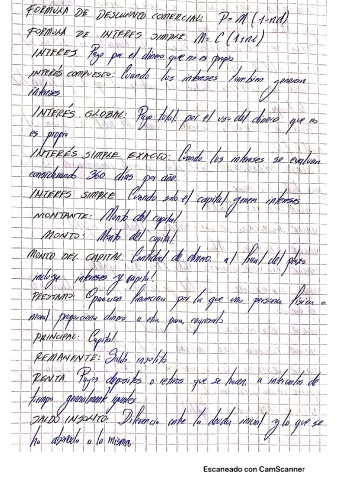 FORMULA DE DESCUENTO COMERCIAL: P= M (1-nd)
FORMULA DE INTERES SIMPLE: M= C (1+ni)
INTERES Pago por el dinero que no es propio
INTERÉS COMPUESTO: Cuando los intereses tambien generan
intereses
INTERÉS GLOBAL: Pago total por el uso del dinero que no
es propio
INTERÉS SIMPLE EXACTO: Cuando los intereses se evaluan
considerando 360 dias por año
INTERES SIMPLE Cuando solo el capital genera intereses
MONTANTE: Monto del capital
MONTO: Monto del capital
MONTO DEL CAPITAL: Cantidad de dinero al final del plazo
incluye intereses y capital
PRESTAMO Operacion financiera por la que una persona fisica o
moral proporciona dinero a otra para
PRINCIPAL: Capital
REMANENTE: Saldo insoluto
RENTA Pagos depositos o retiros que se hacen a intervalos de
tiempo generalmente iguales
SALDO INSOLUTO: Diferencia entre la deuda inicial y lo que se
ha abonado a la misma
Escaneado con CamScanner